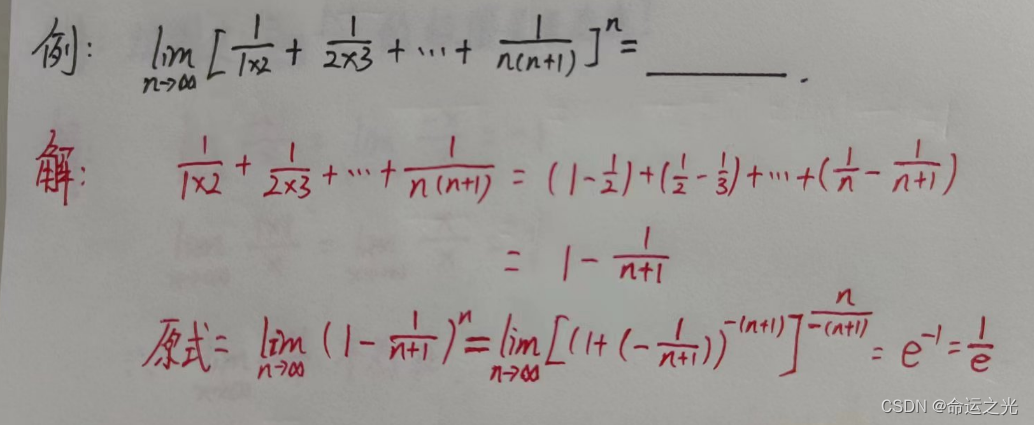 例: lim n→∞ [1/1×2 + 1/2×3 + ⋯ + 1/n(n+1)]^n = ______ .
解: 1/1×2 + 1/2×3 + ⋯ + 1/n(n+1) = (1-1/2)+(1/2-1/3)+⋯+(1/n-1/n+1)
= 1 - 1/n+1
原式= lim n→∞ (1-1/n+1)^n = lim n→∞ [(1+(-1/n+1))^-(n+1)]^n/-(n+1) = e^-1 = 1/e
CSDN @命运之光